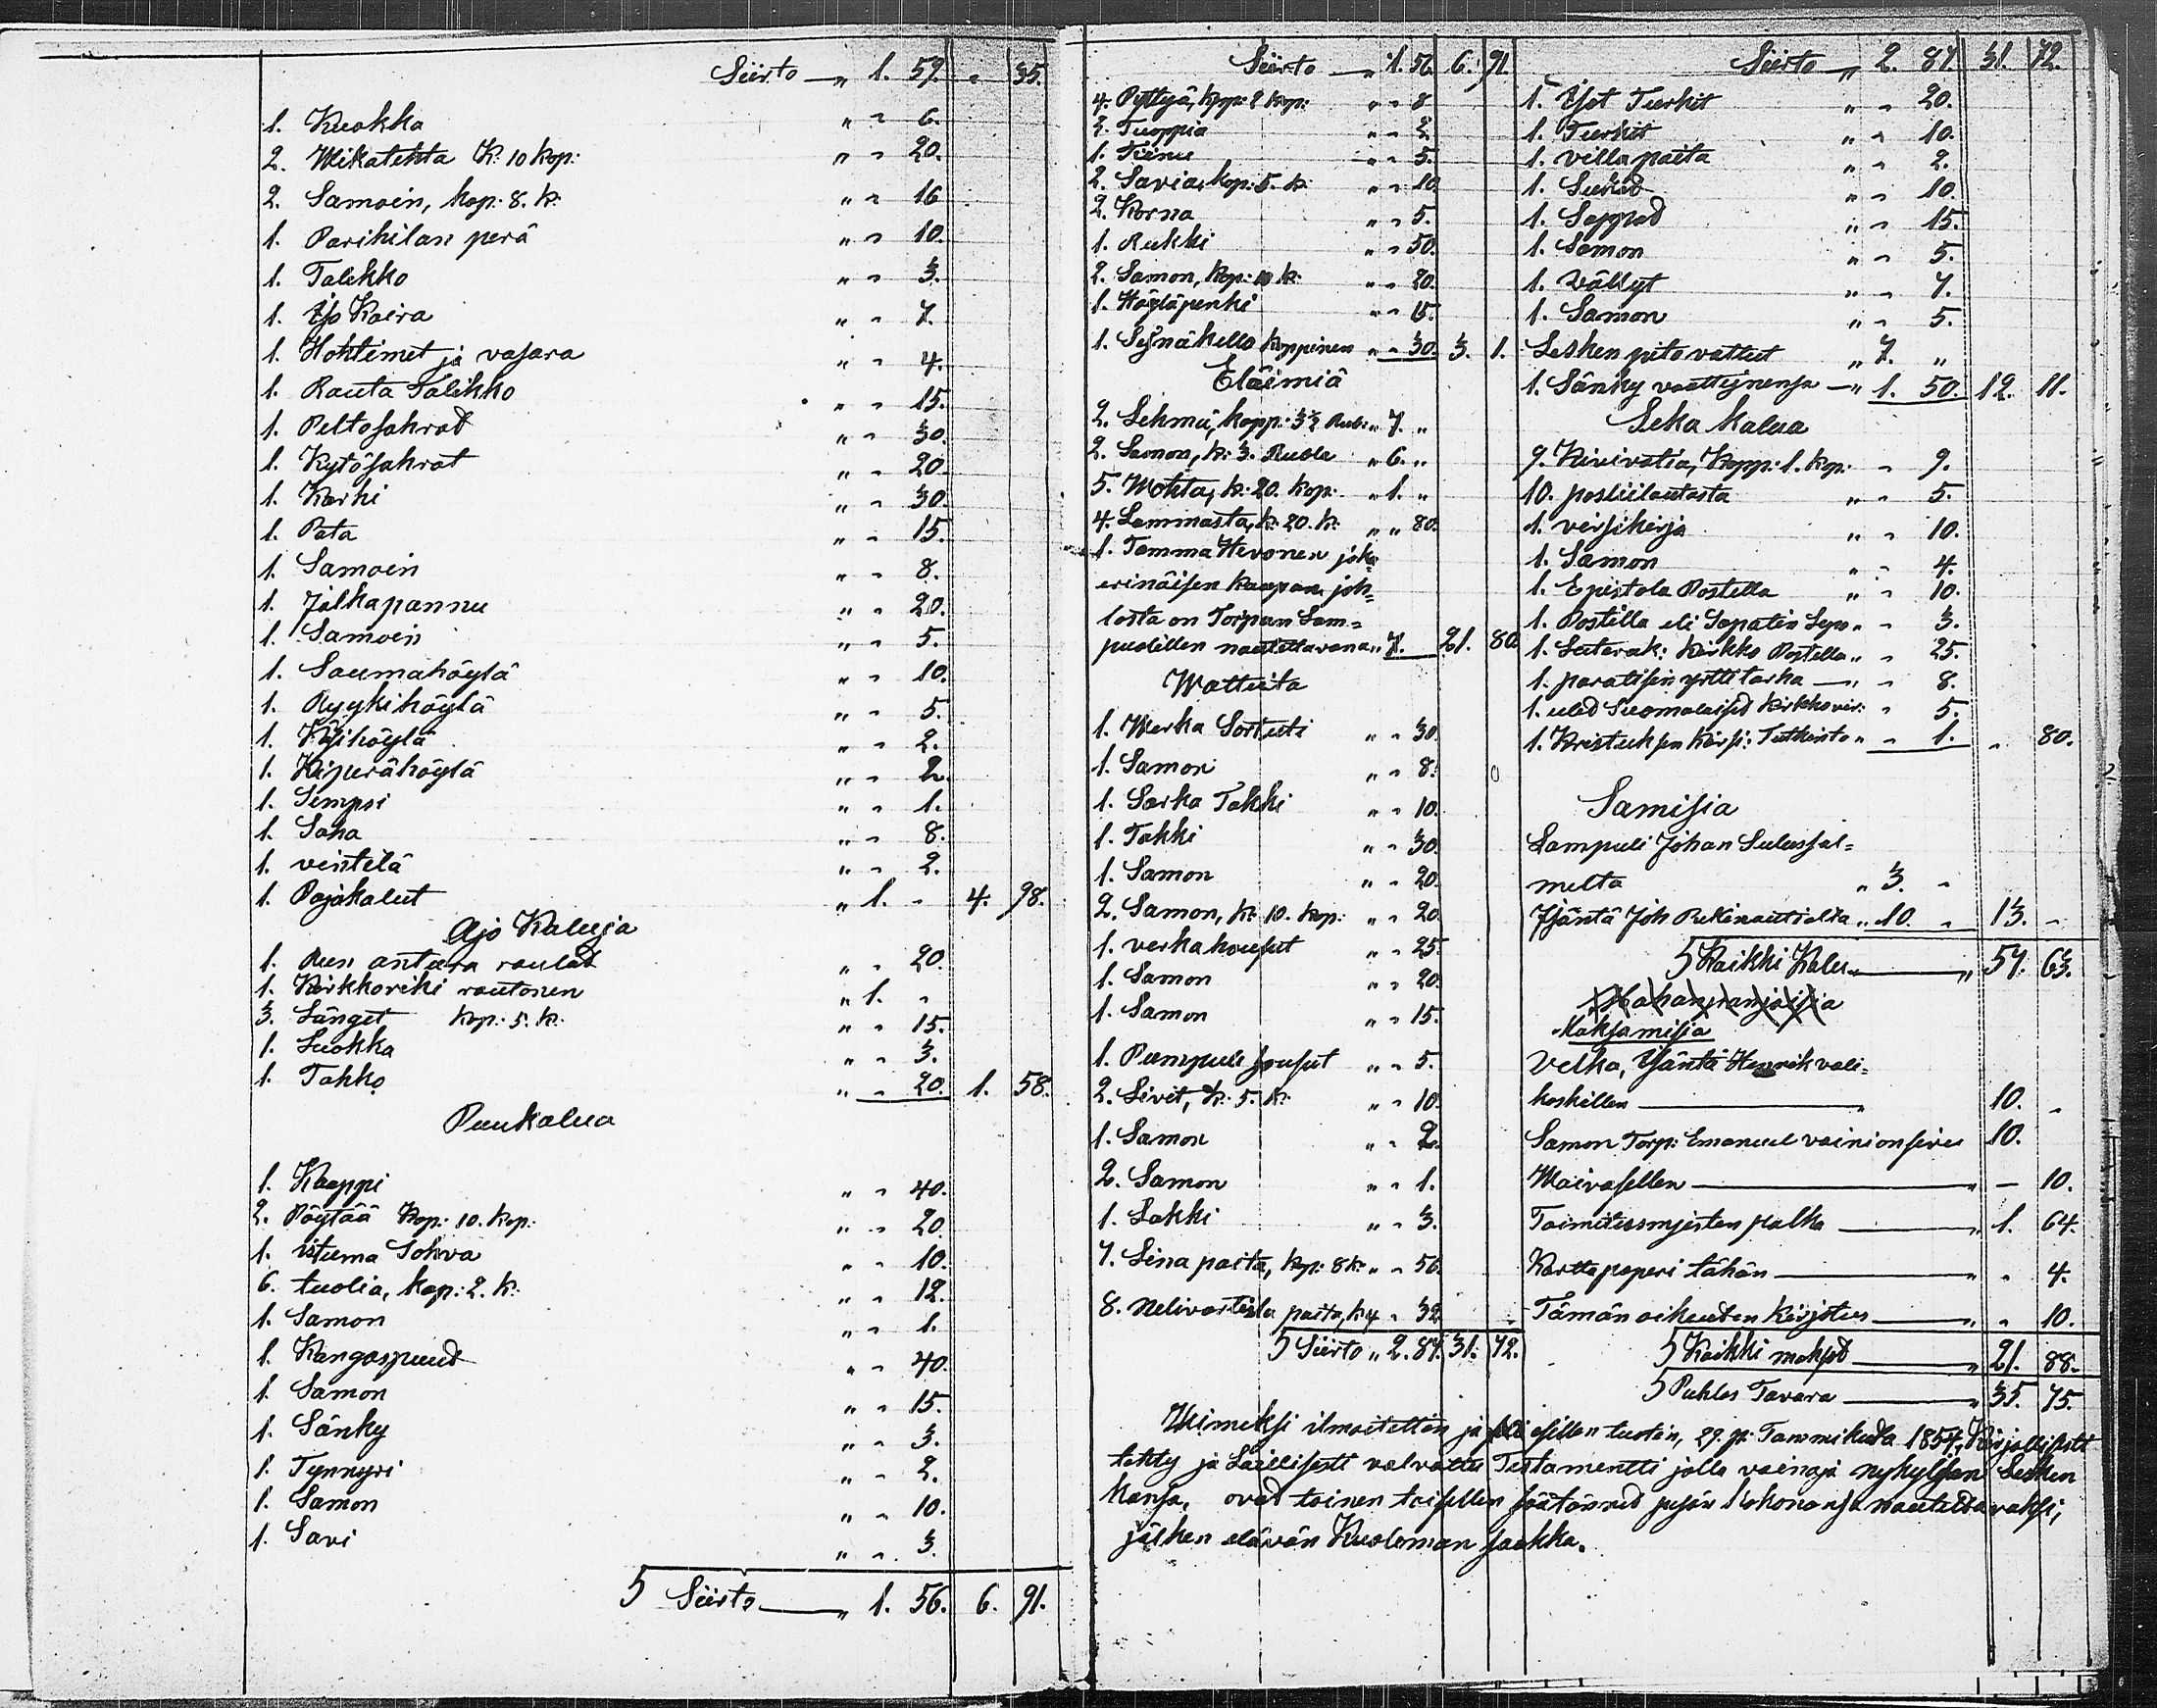 Siirto — „ 1. 59. „ 35.
1. Kuokka „ „ 6.
2. Wikatehta K: 10 kop: „ „ 20.
2. Samoin, kop: 8. k: „ „ 16
1. Parihilan perä „ „ 10.
1. Talikko „ „ 3.
1. Iso Kaira „ „ 7.
1. Hohtimet ja vasara „ „ 4.
1. Rauta Talikko „ „ 15.
1. Peltosahrad „ „ 30.
1. Kytösahrat „ „ 20.
1. Karhi „ „ 30.
1. Pata „ „ 15.
1. Samoin „ „ 8.
1. Jalkapannu „ „ 20.
1. Samoin „ „ 5.
1. Saumahöylä „ „ 10.
1. Ryykihöylä „ „ 5.
1. höylä „ „ 2.
1. Kiperähöylä „ „ 2.
1. Simpsi „ „ 1.
1. Saha „ „ 8.
1. vintilä „ „ 2.
1. Pajakalut „ 1. - 4. 98.
Ajo Kaluja
1. Reen antura raudat „ „ 20.
1. Kirkkoreki rautonen „ 1. „
3. Länget kop: 5. k: „ „ 15.
1. Luokka „ „ 3.
1. Tahko „ „ 20. 1. 58.
Puukalua
1. Kaappi „ „ 40.
2. Pöytää kop: 10. kop: „ „ 20.
1. istuma Sohva „ „ 10.
6. tuolia, kop: 2. k: „ „ 12.
1. Samon „ „ 1.
1. Kangaspuud „ „ 40.
1. Samon „ „ 15.
1. Sänky „ „ 3.
1. Tynnyri „ „ 2.
1. Samon „ „ 10.
1. Savi „ „ 3.
Siirto — „ 1. 56. 6. 91.
Siirto — „ 1. 56. 6. 91.
4. Pyttyä, kpp: 2 kop: „ „ 8
2. Tuoppia „ „ 2.
1. Kiinu „ „ 5.
2. Savia, kop: 5. k: „ „ 10
2. Korna „ „ 5.
1. Rukki „ „ 50.
2. Samon, kop: 10 k: „ „ 20.
1. Höyläpenki „ „ 15.
1. Seinäkello koppinen „ „ 30. 3. 1.
Eläimiä
2. Lehmä, kapp: 3½ Rub: „ 7. „
2. Samon, k: 3. Rubla „ 6. „
5. Mohta, k: 20. kop: „ 1. „
4. Lammasta, k: 20. k: „ „ 80.
1. Tamma Hevonen joka
erinäisen kaupan joh=
losta on Torpan Lam=
puolillen nautittavana „ 7. 21. 80.
Watteita
1. Werka Sortuti „ „ 30.
1. Samon „ „ 8.
1. Sarka Takki „ „ 10.
1. Takki „ „ 30.
1. Samon „ „ 20.
2. Samon, k: 10. kop: „ „ 20.
1. verkahousut „ „ 25.
1. Samon „ „ 20.
1. Samon „ „ 15.
1. Pumpuli housut „ „ 5.
2. Livit, k: 5. k: „ „ 10.
1. Samon „ „ 2.
2. Samon „ „ 1.
1. Lakki „ „ 3.
7. Lina paita, kop: 8 k: „ „ 56.
8. Nelivartista paita, k 4 „ 32
Siirto „ 2. 87. 31. 72.
Siirto — „ 2. 87. 31. 72.
1. Isot Turkit „ „ 20.
1. Turkit „ „ 10.
1. villapaita „ „ 2.
1. „ „ 10.
1. Sappad „ „ 15.
1. Samon „ „ 5.
1. Vällyt „ „ 7.
1. Samon „ „ 5.
Lesken pito vattet „ 7. „
1. Sänky vaattejnensa — „ 1. 50. 12. 11.
Seka kalua
9. Kivivatia, Kapp: 1. kop: „ 9.
10. posliilautasta „ „ 5.
1. virsikirja „ „ 10.
1. Samon „ „ 4.
1. Epistola Postella „ „ 10.
1. Postilla eli Sapatin Lepo „ „ 3.
1. Luterak: Kirkko Postella „ „ 25.
1. paratisin yrttitarha — „ „ 8.
1. uud Suomalaised kirkkovir: „ 5.
1. Kristuksen Kärsi: Tutkinto „ „ 1. „ 80.
Samisia
Lampuli Johan Sulussal=
melta „ 3. „
Isäntä Joh Rukinautiolta „ 10. „ 13. -
Kaikki Kalu — „ 57. 63.
Maksamisia
Velka, Isäntä Henrik vali=
koskillen — „ 10. „
Samon Torp: Emanuel vainionsivu 10.
Waivasellen — „ — 10.
Toimitusmjesten palka — „ 1. 64.
Kartta paperi tähän — „ „ 4.
Tämän oikeuden Kirjotus — „ „ 10.
Kaikki maksot — „ 21. 88.
Puhlas Tavara — „ 35. 75.
Wimeksi ilmoitettin ja esillen tuotin, 29. p: Tammikuta 1854, Kirjallisesti
tehty ja Laillisesti valvattu Testamentti jolla vainaja nykylsen Lesken
kansa, ovat toinen toisellen säätännet pesän kokonansa nautittavaksi,
jälken elävän Kuoleman saakka.